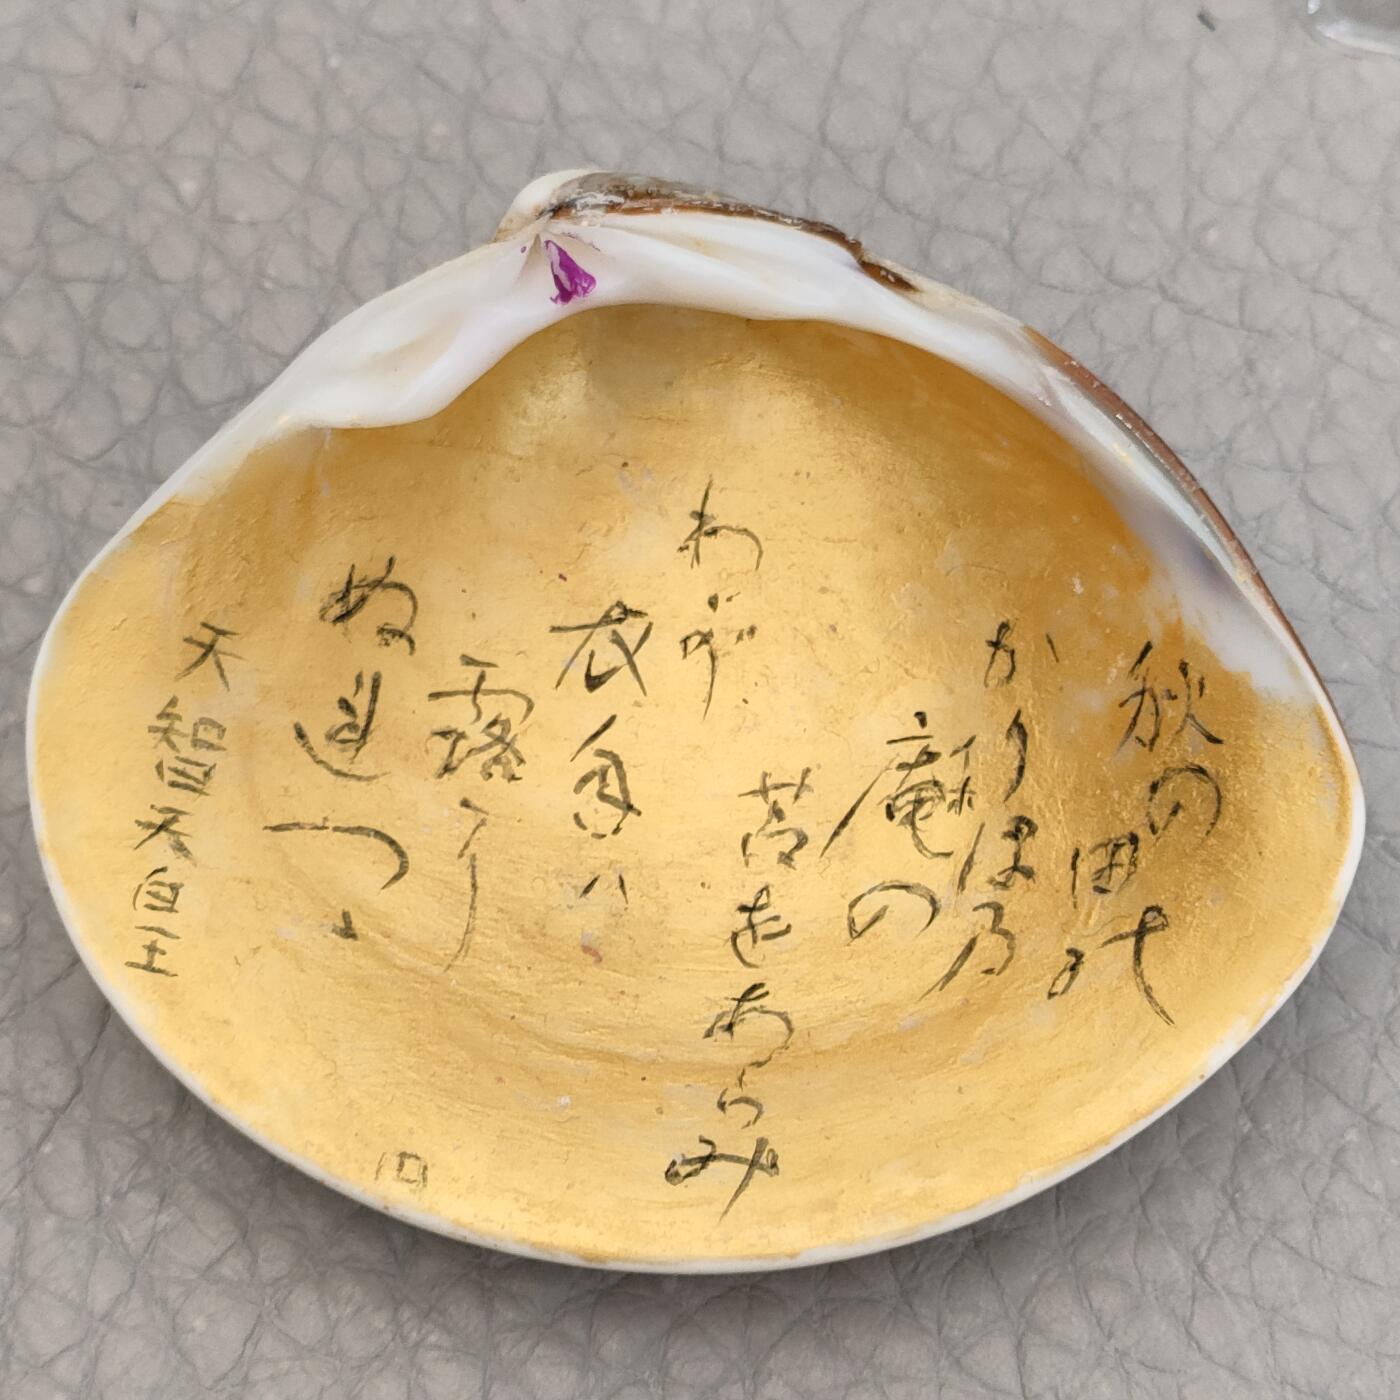 秋の
田能
かりほ乃
庵の
苫をあらみ
わが
衣手ハ
露に
ぬ連つゝ
天智天皇